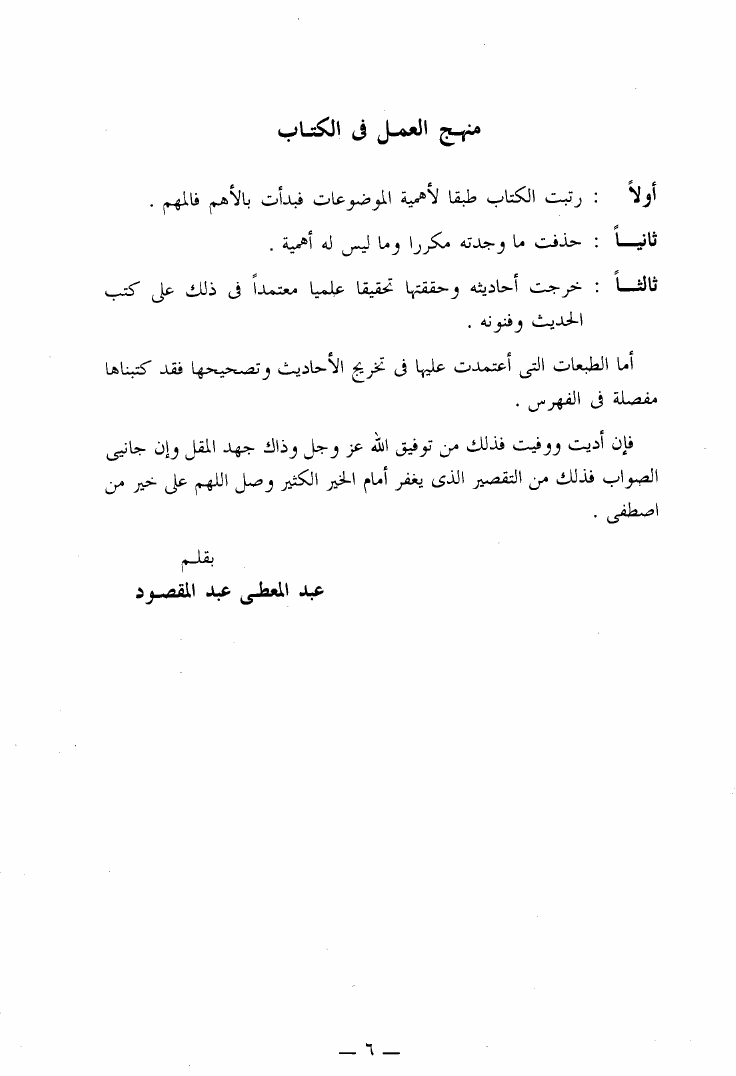 منهج العمل فى الكتاب
أولاً : رتبت الكتاب طبقا لأهمية الموضوعات فبدأت بالأهم فالمهم .
ثانيـاً : حذفت ما وجدته مكررا وما ليس له أهمية .
ثالثـاً : خرجت أحاديثه وحققتها تحقيقا علميا معتمداً فى ذلك على كتب
الحديث وفنونه .
أما الطبعات التى أعتمدت عليها فى تخريج الأحاديث وتصحيحها فقد كتبناها
مفصلة فى الفهرس .
فإن أديت ووفيت فذلك من توفيق الله عز وجل وذاك جهد المقل وإن جانبى
الصواب فذلك من التقصير الذى يغفر أمام الخير الكثير وصل اللهم على خير من
اصطفى .
بقلـم
عبد المعطى عبد المقصود
— ٦ —